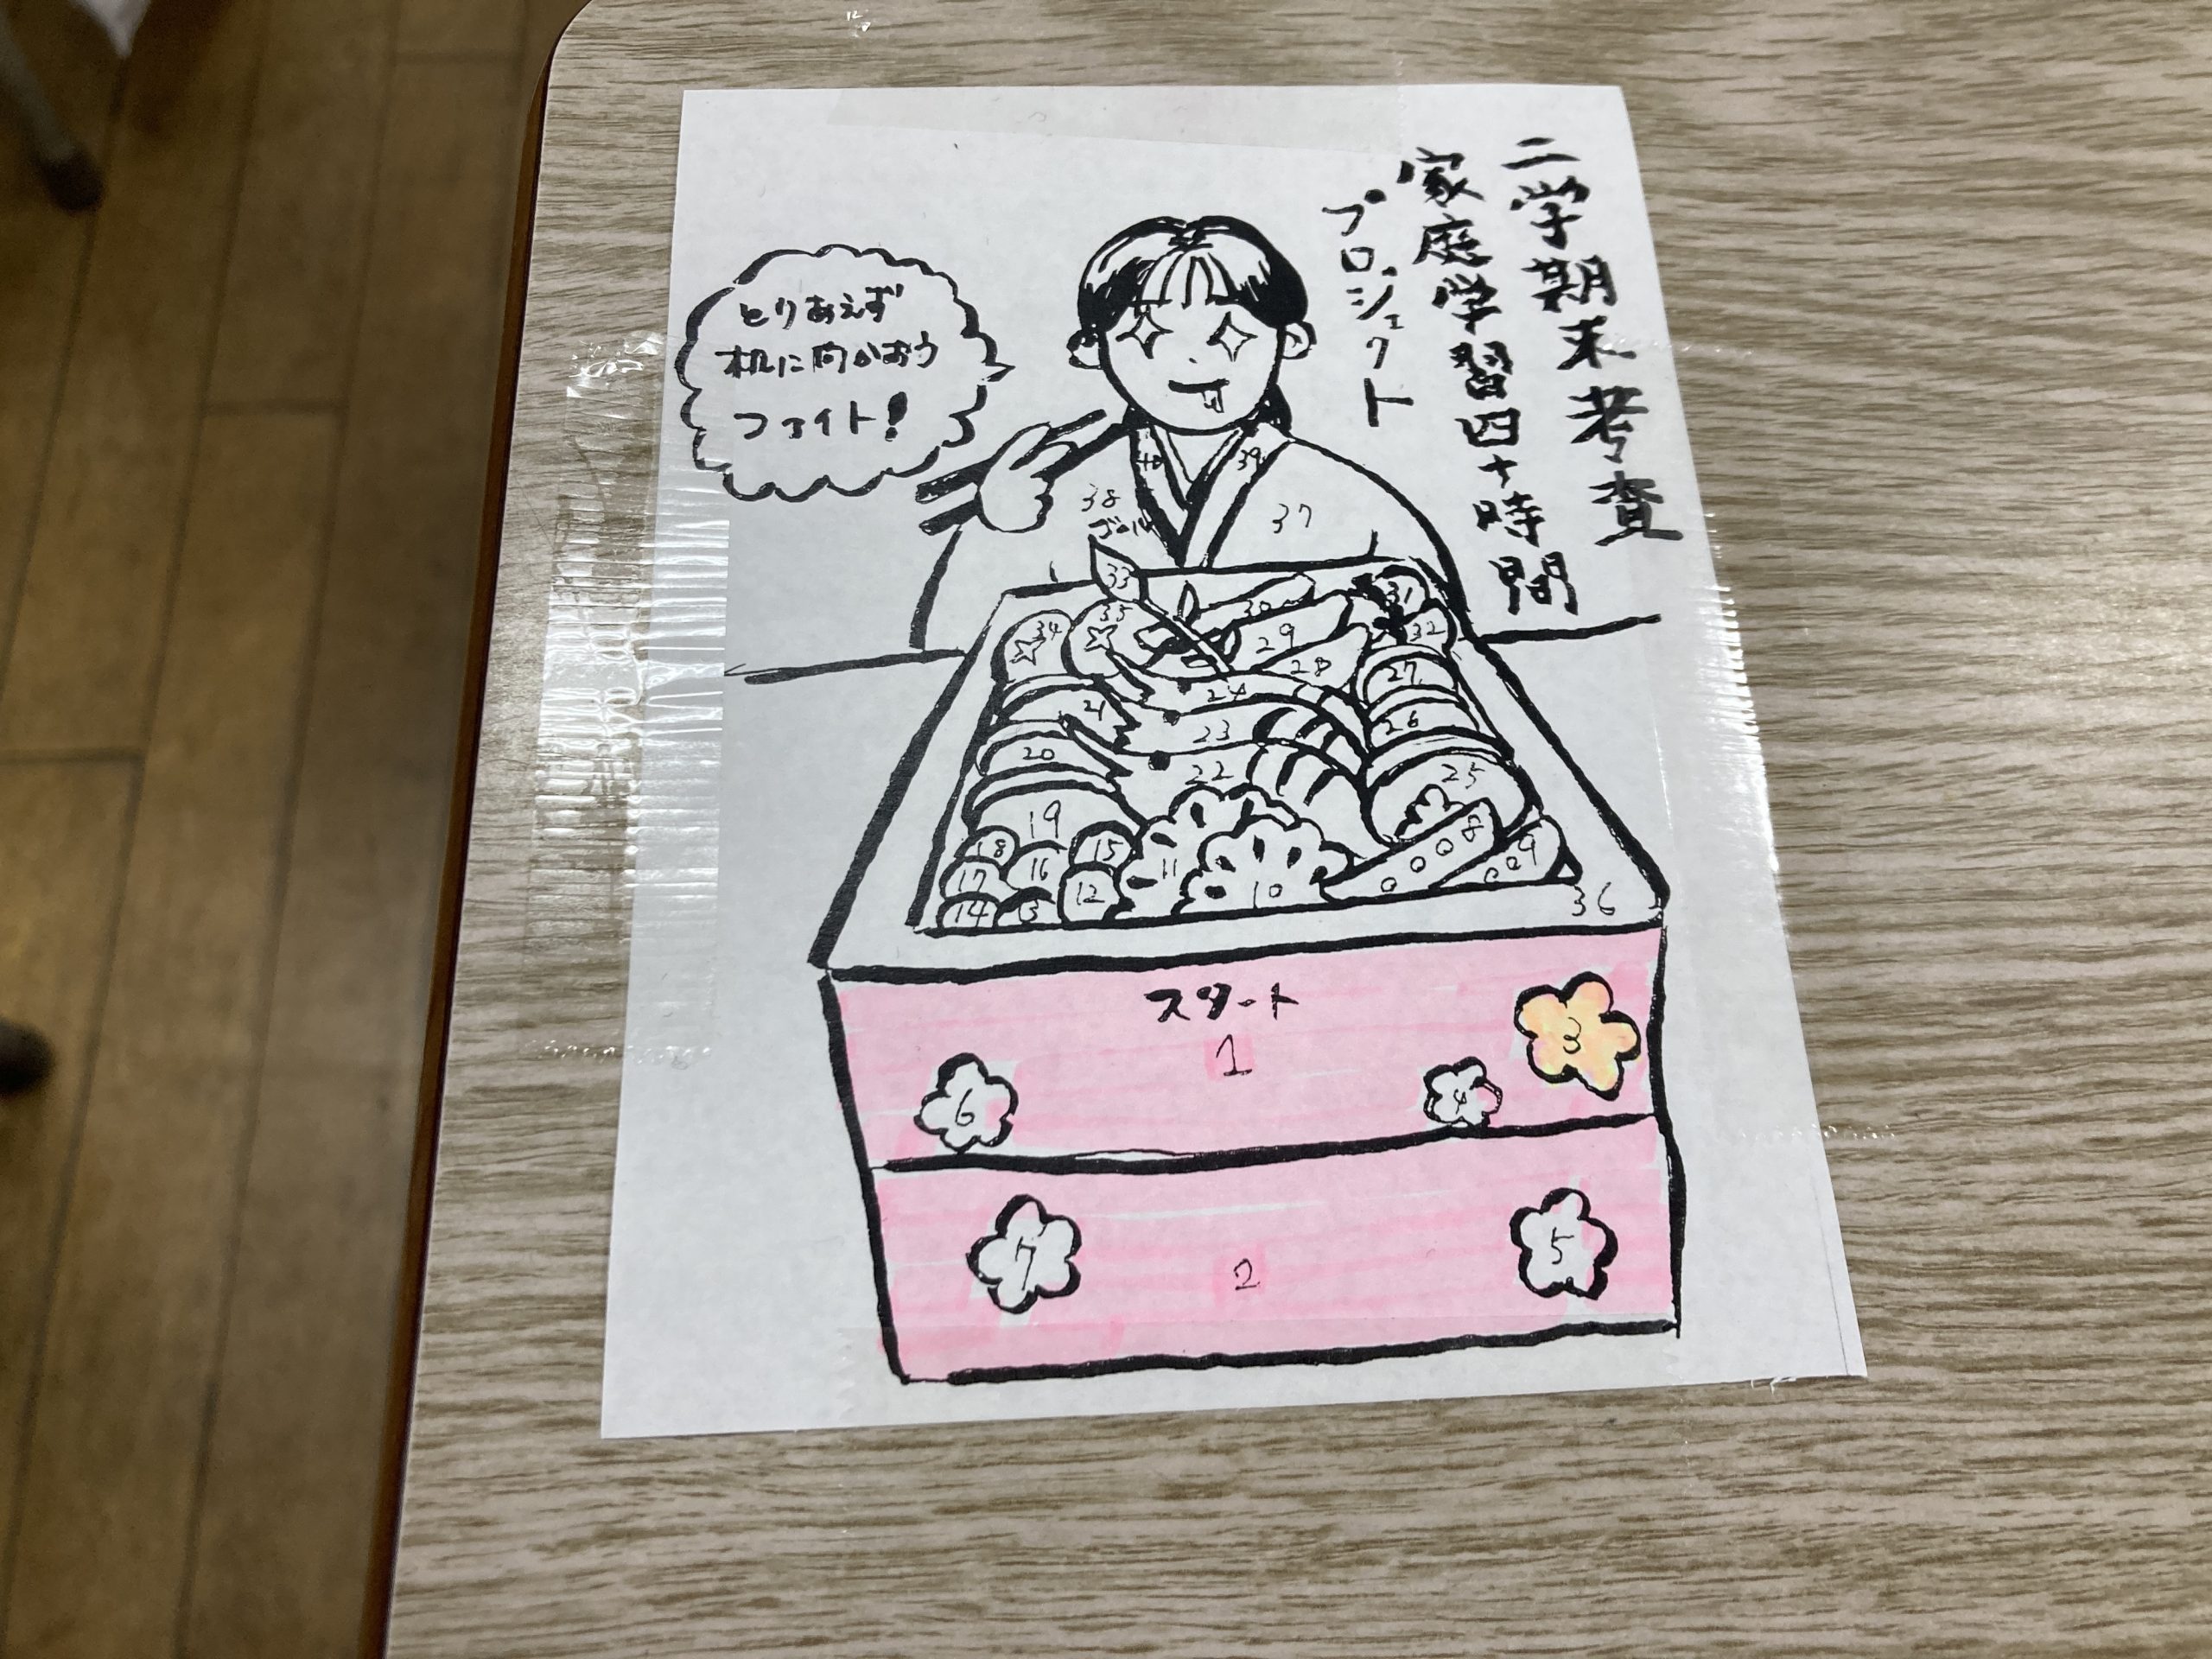 二学期末考査
家庭学習四十時間
プロジェクト
とりあえず
机に向かおう
ファイト!
40
39
38
ゴール
37
33
30
31
34
35
29
32
28
27
24
21
23
26
20
22
25
19
8
18
15
9
16
11
17
12
10
14
13
36
スタート
1
3
6
4
7
2
5